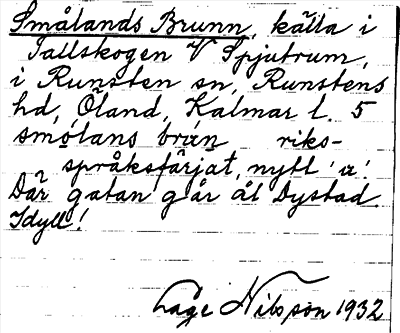 Smålands Brunn, källa i
Tallskogen V Spjutrum,
i Runsten sn, Runstens
hd, Öland, Kalmar l. 5
smōlans brøn riks-
språksfärjat, nytt 'a'.
Där gatan går åt Dystad.
Idyll!
Låge Nilsson 1932